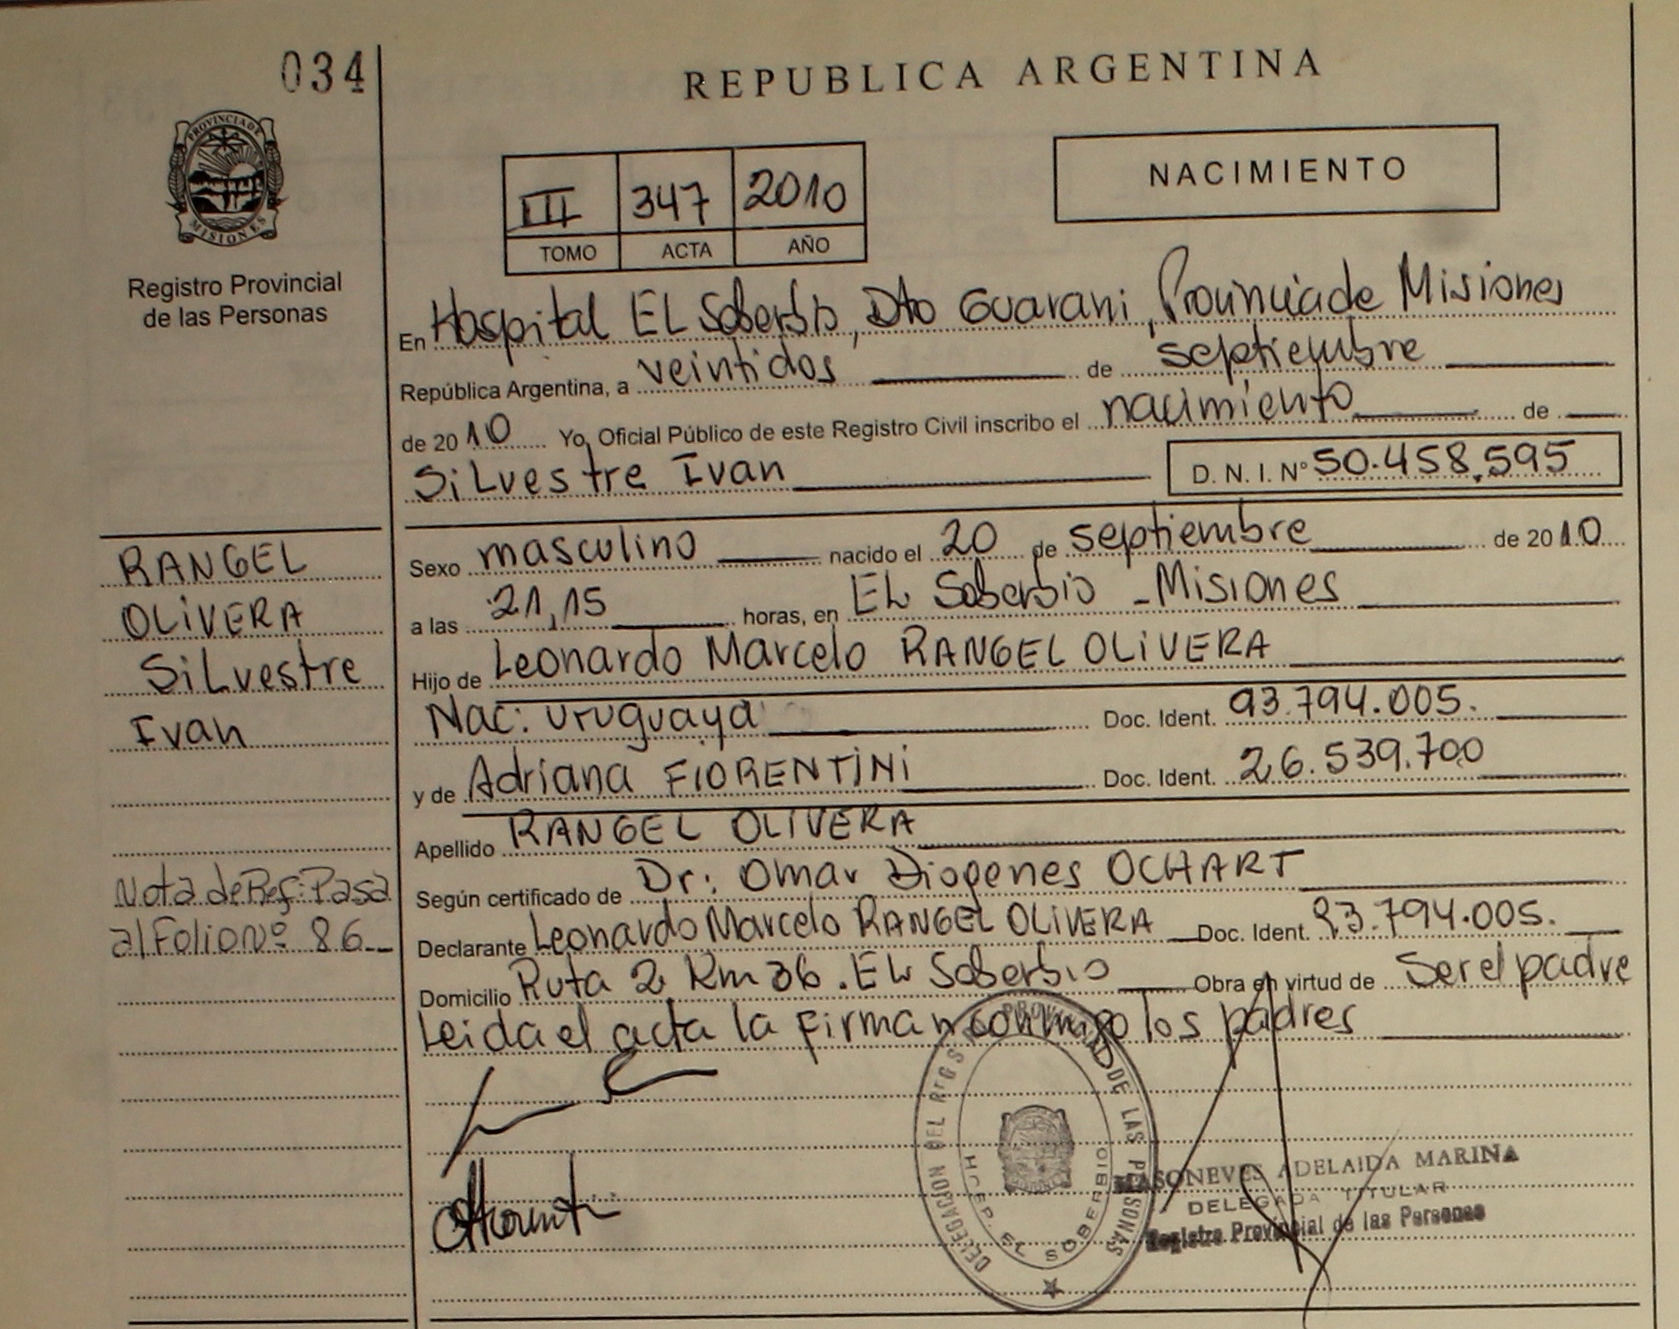 034
REPUBLICA ARGENTINA
PROVINCIA DE
MISIONES
Registro Provincial
de las Personas
III 347 2010
TOMO ACTA AÑO
NACIMIENTO
En Hospital EL Soberbio, Dto Guarani, Provincia de Misiones
República Argentina, a veintidos de septiembre
de 2010 Yo, Oficial Público de este Registro Civil inscribo el nacimiento de
Silvestre Ivan D. N. I. N° 50.458.595
RANGEL
OLIVERA
Silvestre
Ivan
Sexo masculino nacido el 20 de septiembre de 2010
a las 21,15 horas, en EL Soberbio - Misiones
Hijo de Leonardo Marcelo RANGEL OLIVERA
Nac: uruguaya Doc. Ident. 93.794.005.
y de Adriana FIORENTINI Doc. Ident. 26.539.700
Apellido RANGEL OLIVERA
Según certificado de Dr: Omar Diogenes OCHART
Nota de Ref: Pasa
al Folio Nº 86
Declarante Leonardo Marcelo RANGEL OLIVERA Doc. Ident. 93.794.005.
Domicilio Ruta 2 Km 36. EL Soberbio Obra en virtud de Ser el padre
Leida el acta la firman conmigo los padres
DELEGACION DEL REGIS PROV DE LAS PERSONAS
EL SOBERBIO
MASONEVES ADELAIDA MARINA
DELEGADA TITULAR
Registro Provincial de las Personas